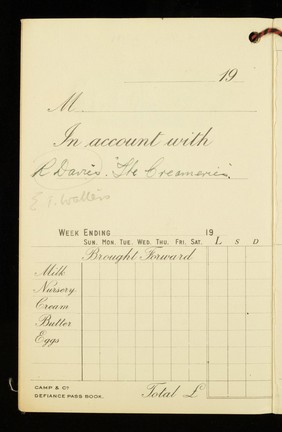 19
M
In account with
R Davies. "The Creameries"
E. T. Walters
WEEK ENDING 19
SUN. MON. TUE. WED. THU. FRI. SAT. L S D
Brought Forward
Milk
Nursery
Cream
Butter
Eggs
CAMP & Co
DEFIANCE PASS BOOK.
Total £